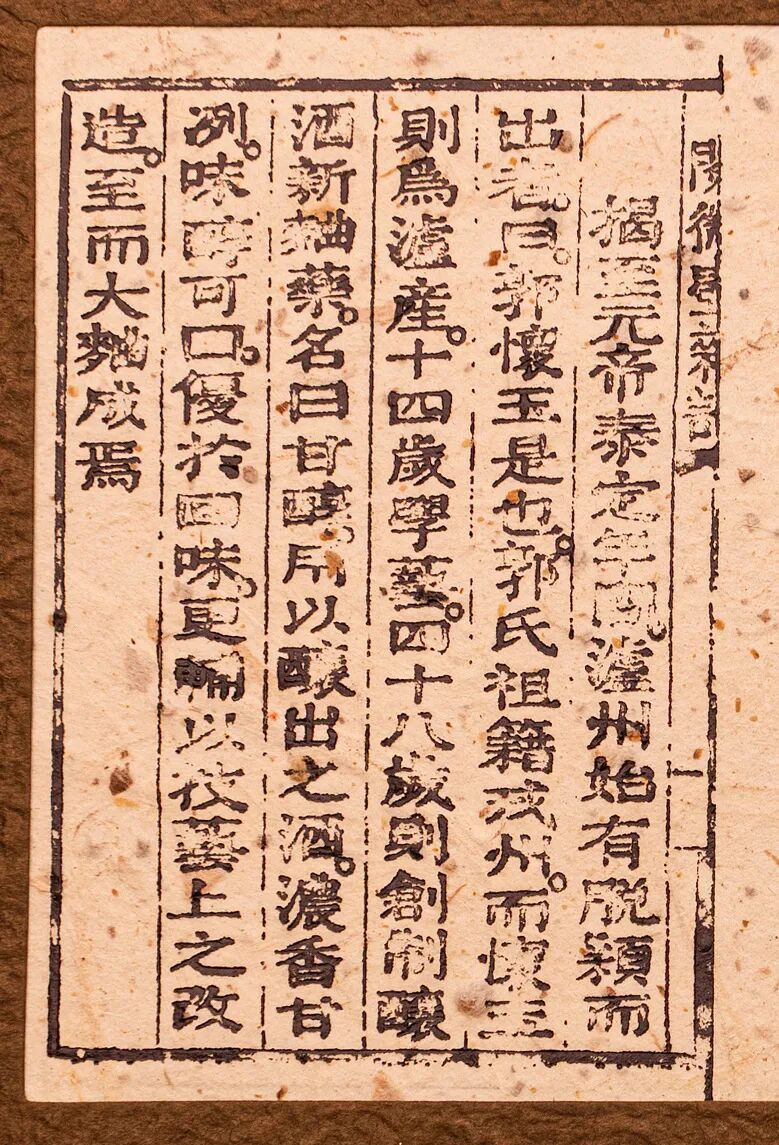 揭至元帝泰定年間。瀘州始有脫穎而
出者曰。郭懷玉是也。郭氏祖籍戎州。而懷玉
則爲瀘產。十四歲學藝。四十八歲則創制釀
酒新麯藥。名曰甘醇。所以釀出之酒。濃香甘
冽。味醇可口。優於回味。更輔以技藝上之改
造。至而大麯成焉